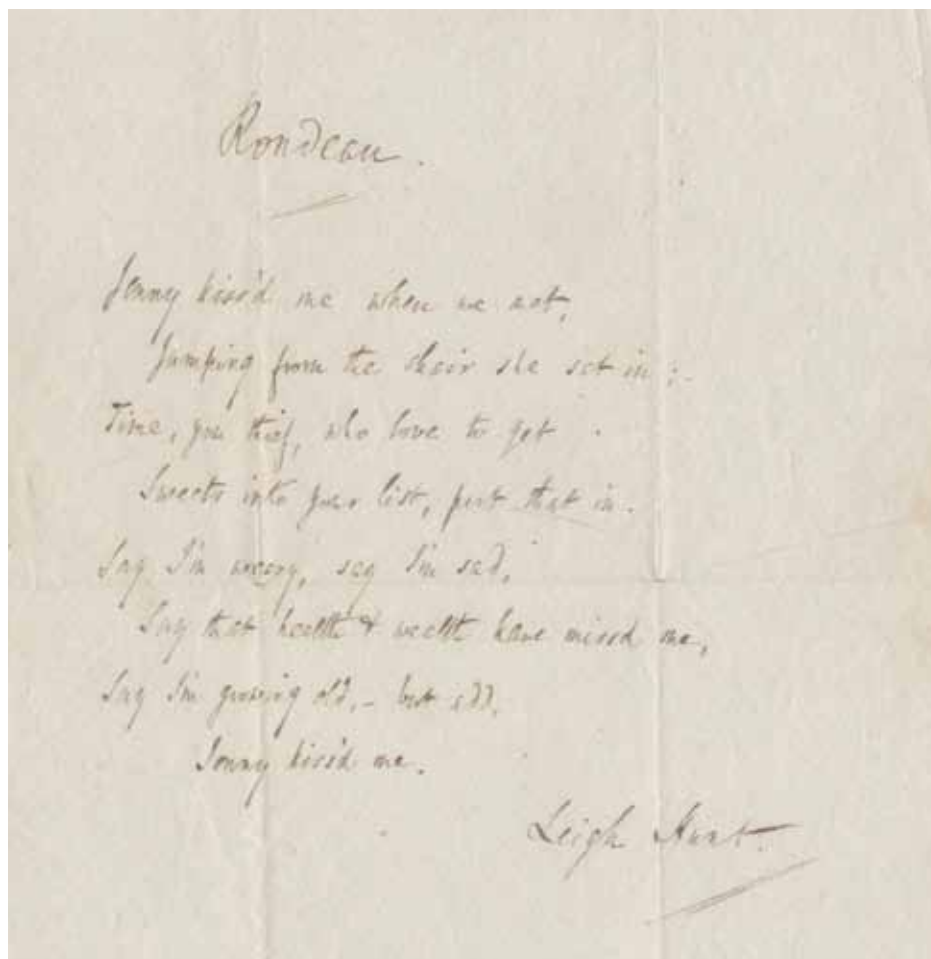 Rondeau.
Jenny kiss'd me when we met,
Jumping from the chair she sat in;–
Time, you thief, who love to get
Sweets into your list, put that in.
Say I'm weary, say I'm sad,
Say that health & wealth have miss'd me,
Say I'm growing old,– but add,
Jenny kiss'd me.
Leigh Hunt.